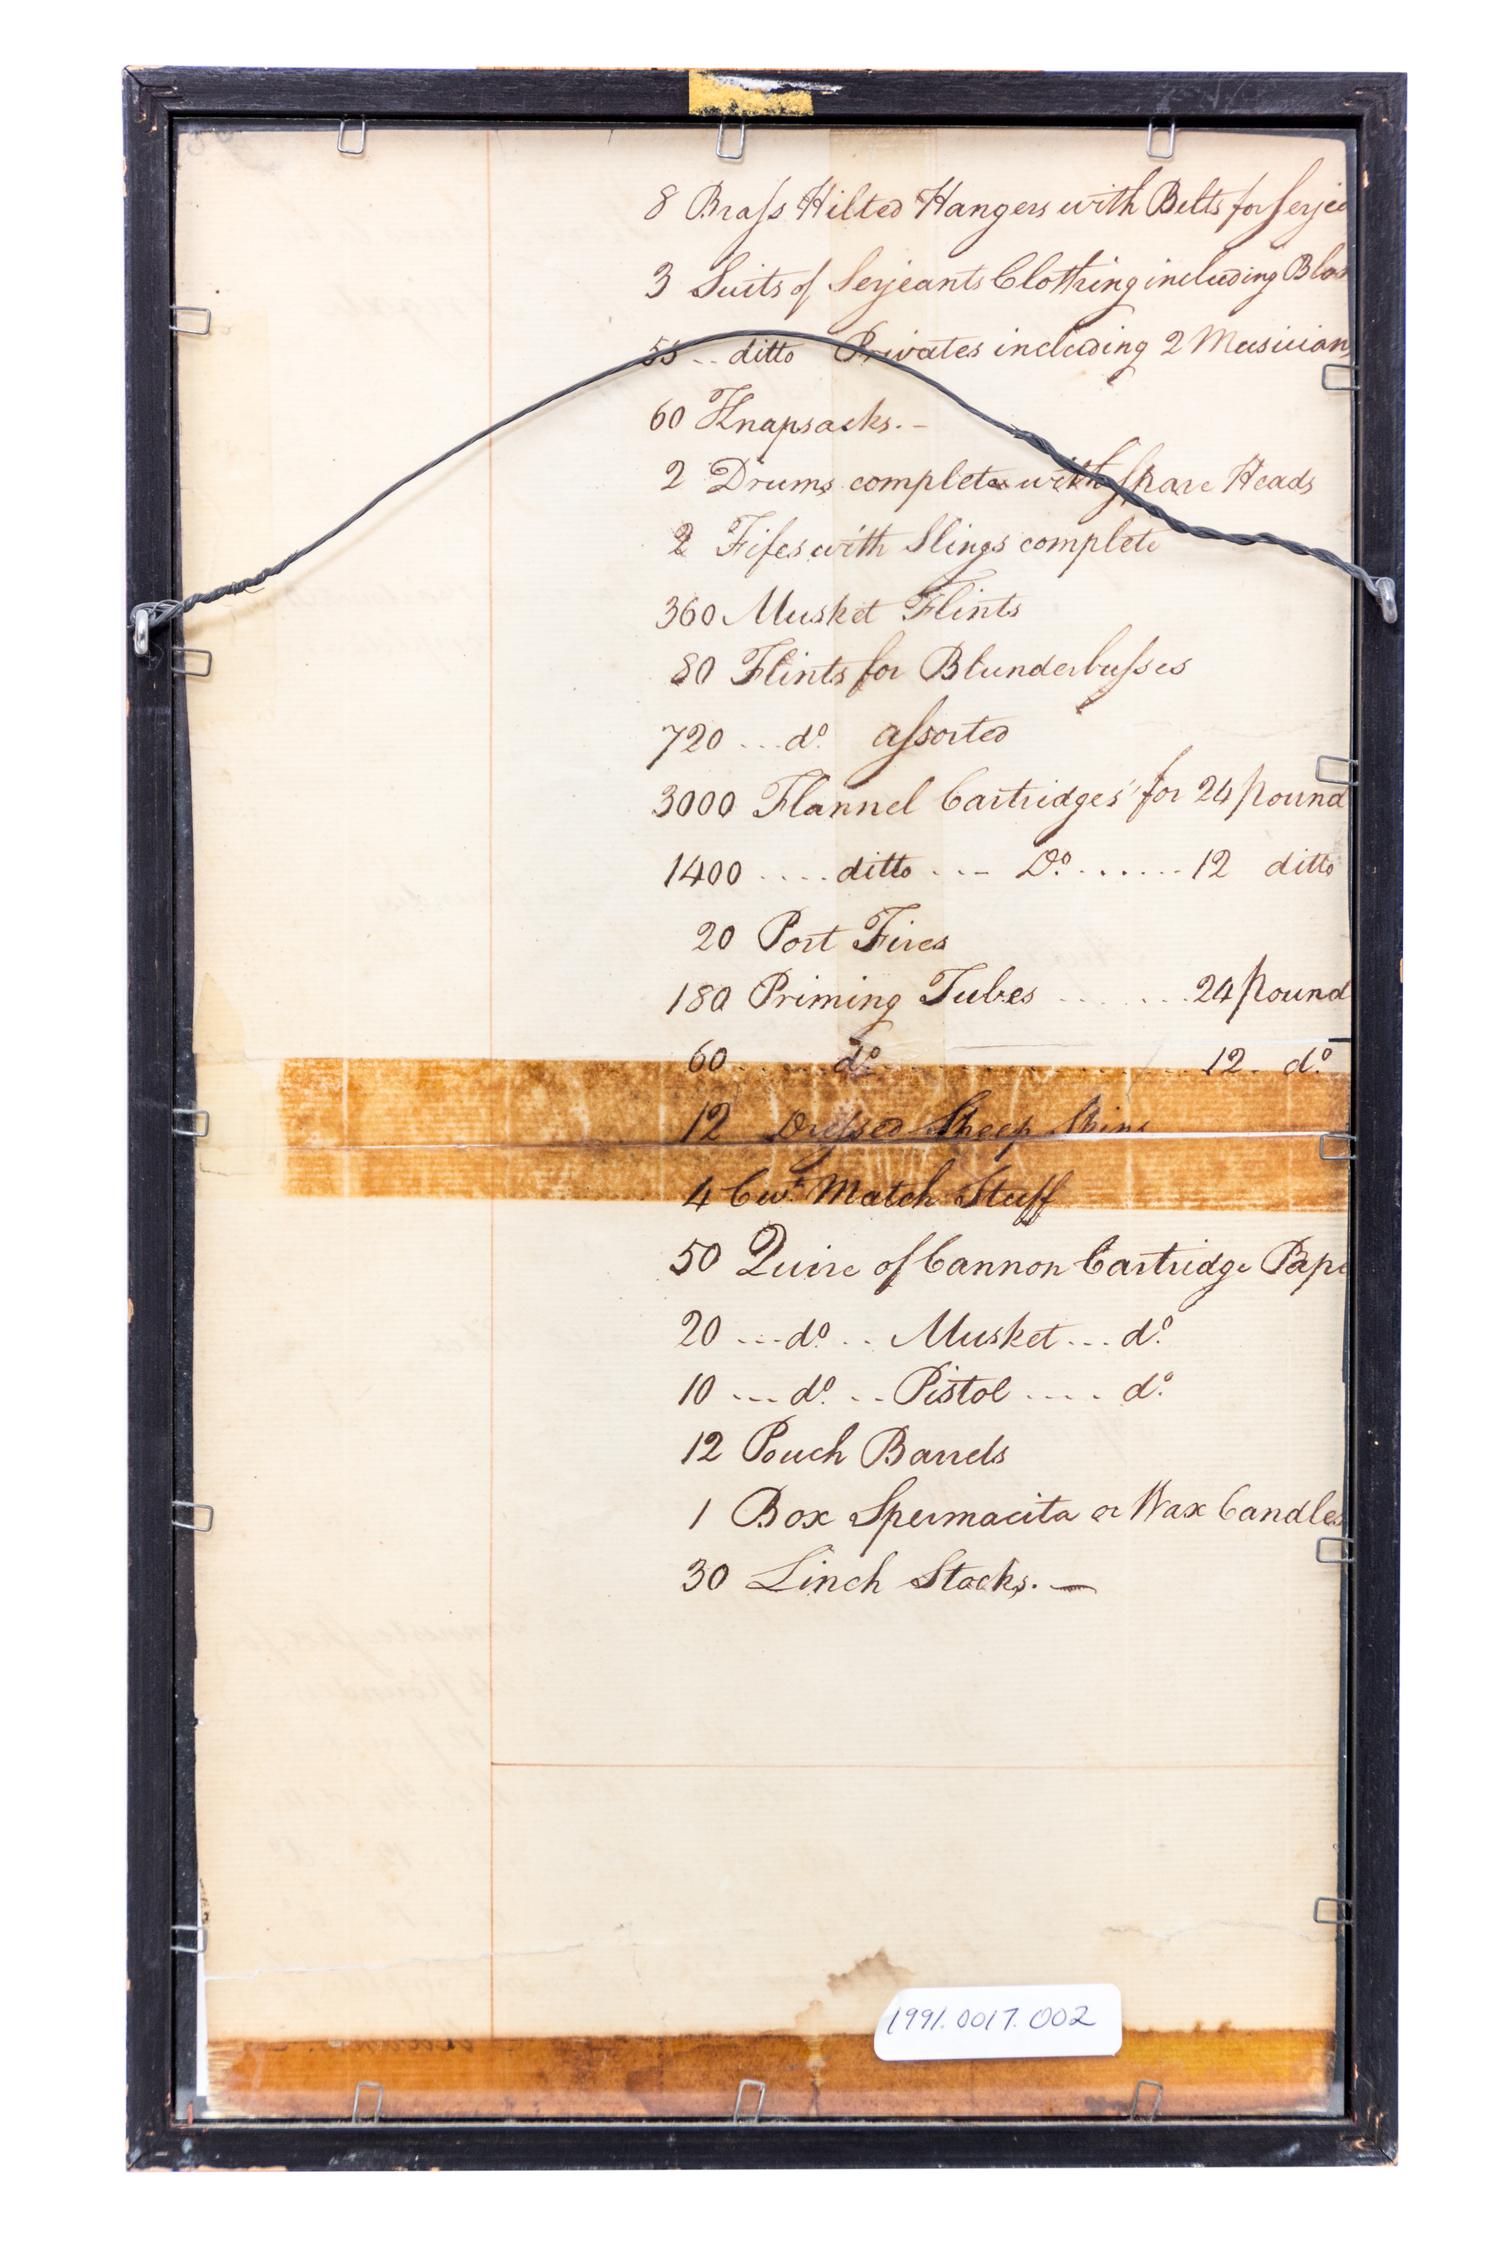 8 Braſs Hilted Hangers with Belts for Serje
3 Suits of Serjeants Clothing including
55 .. ditto Privates including 2 Musician
60 Knapsacks. -
2 Drums complete with Spare Heads
2 Fifes with Slings complete
360 Musket Flints
80 Flints for Blunderbuſses
720 ... do. aſsorted
3000 Flannel Cartridges for 24 pound
1400 .... ditto ... Do. ...... 12 ditto
20 Port Fires
180 Priming Tubes ...... 24 pound
60 ..... do. ............ 12. do.
12 Dreſsed Sheep Skins
4 Cwt. Match Stuff
50 Quire of Cannon Cartridge Pape
20 ... do. .. Musket ... do.
10 ... do. .. Pistol .... do.
12 Pouch Barrels
1 Box Spermacita or Wax Candles
30 Linch Stocks. —
1991.0017.002